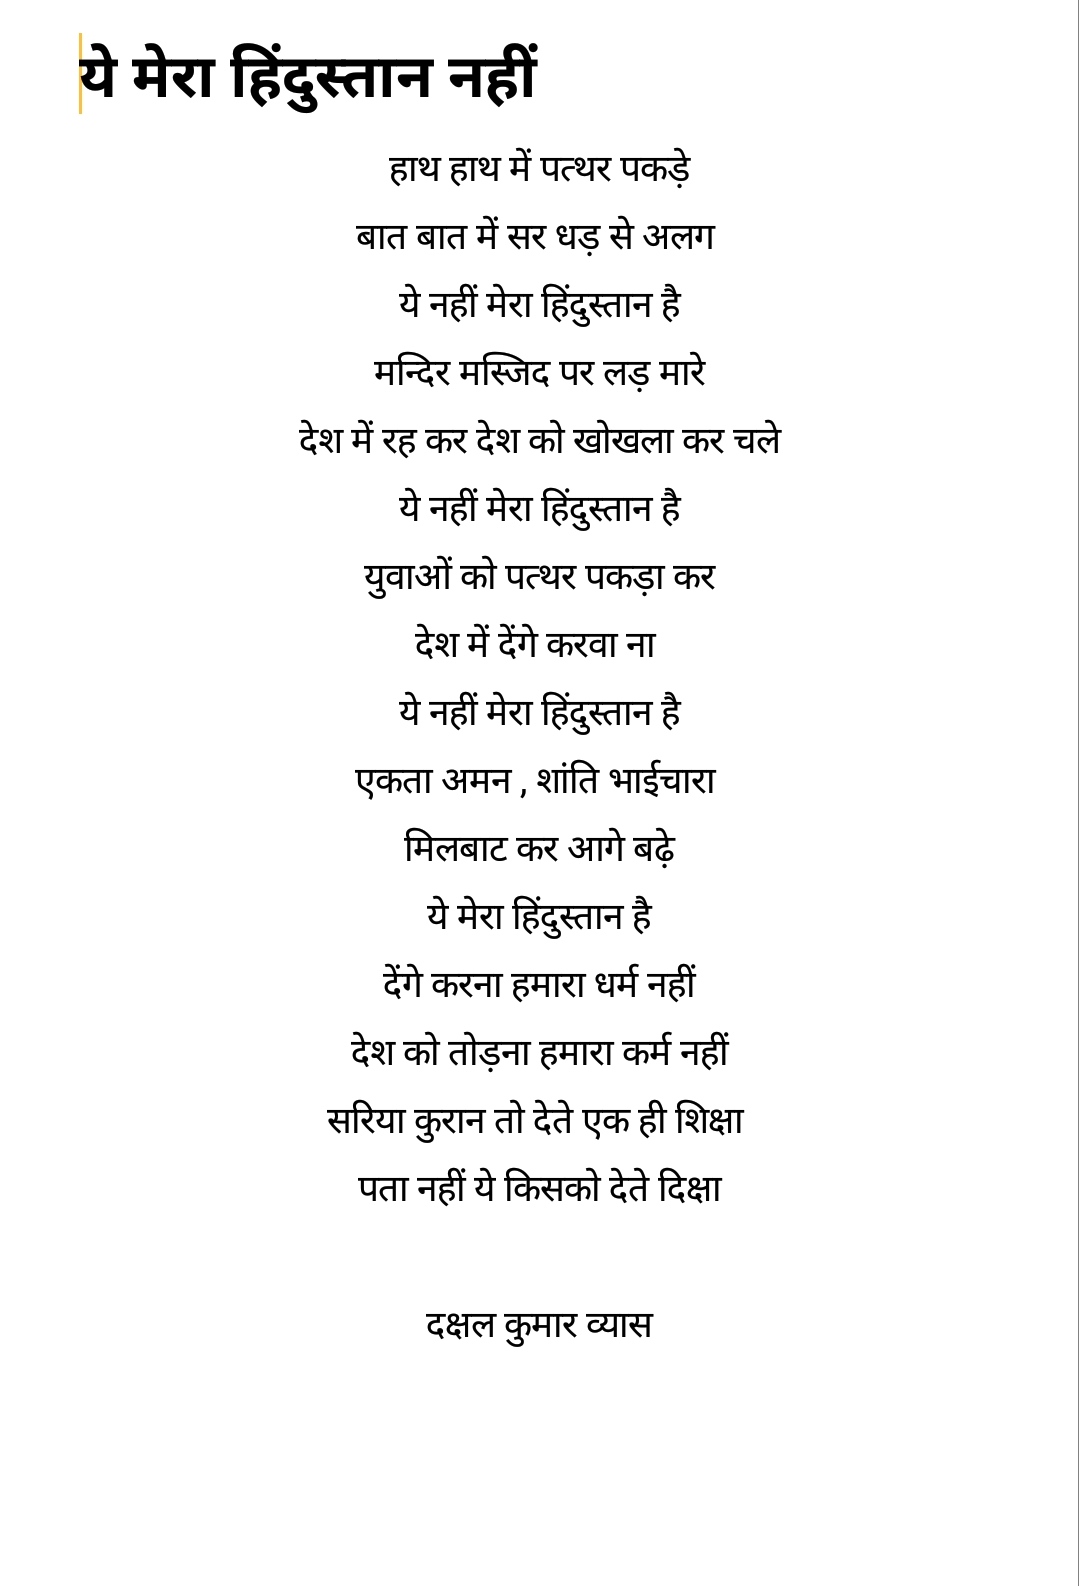 ये मेरा हिंदुस्तान नहीं
हाथ हाथ में पत्थर पकड़े
बात बात में सर धड़ से अलग
ये नहीं मेरा हिंदुस्तान है
मन्दिर मस्जिद पर लड़ मारे
देश में रह कर देश को खोखला कर चले
ये नहीं मेरा हिंदुस्तान है
युवाओं को पत्थर पकड़ा कर
देश में देंगे करवा ना
ये नहीं मेरा हिंदुस्तान है
एकता अमन , शांति भाईचारा
मिलबाट कर आगे बढ़े
ये मेरा हिंदुस्तान है
देंगे करना हमारा धर्म नहीं
देश को तोड़ना हमारा कर्म नहीं
सरिया कुरान तो देते एक ही शिक्षा
पता नहीं ये किसको देते दिक्षा
दक्षल कुमार व्यास